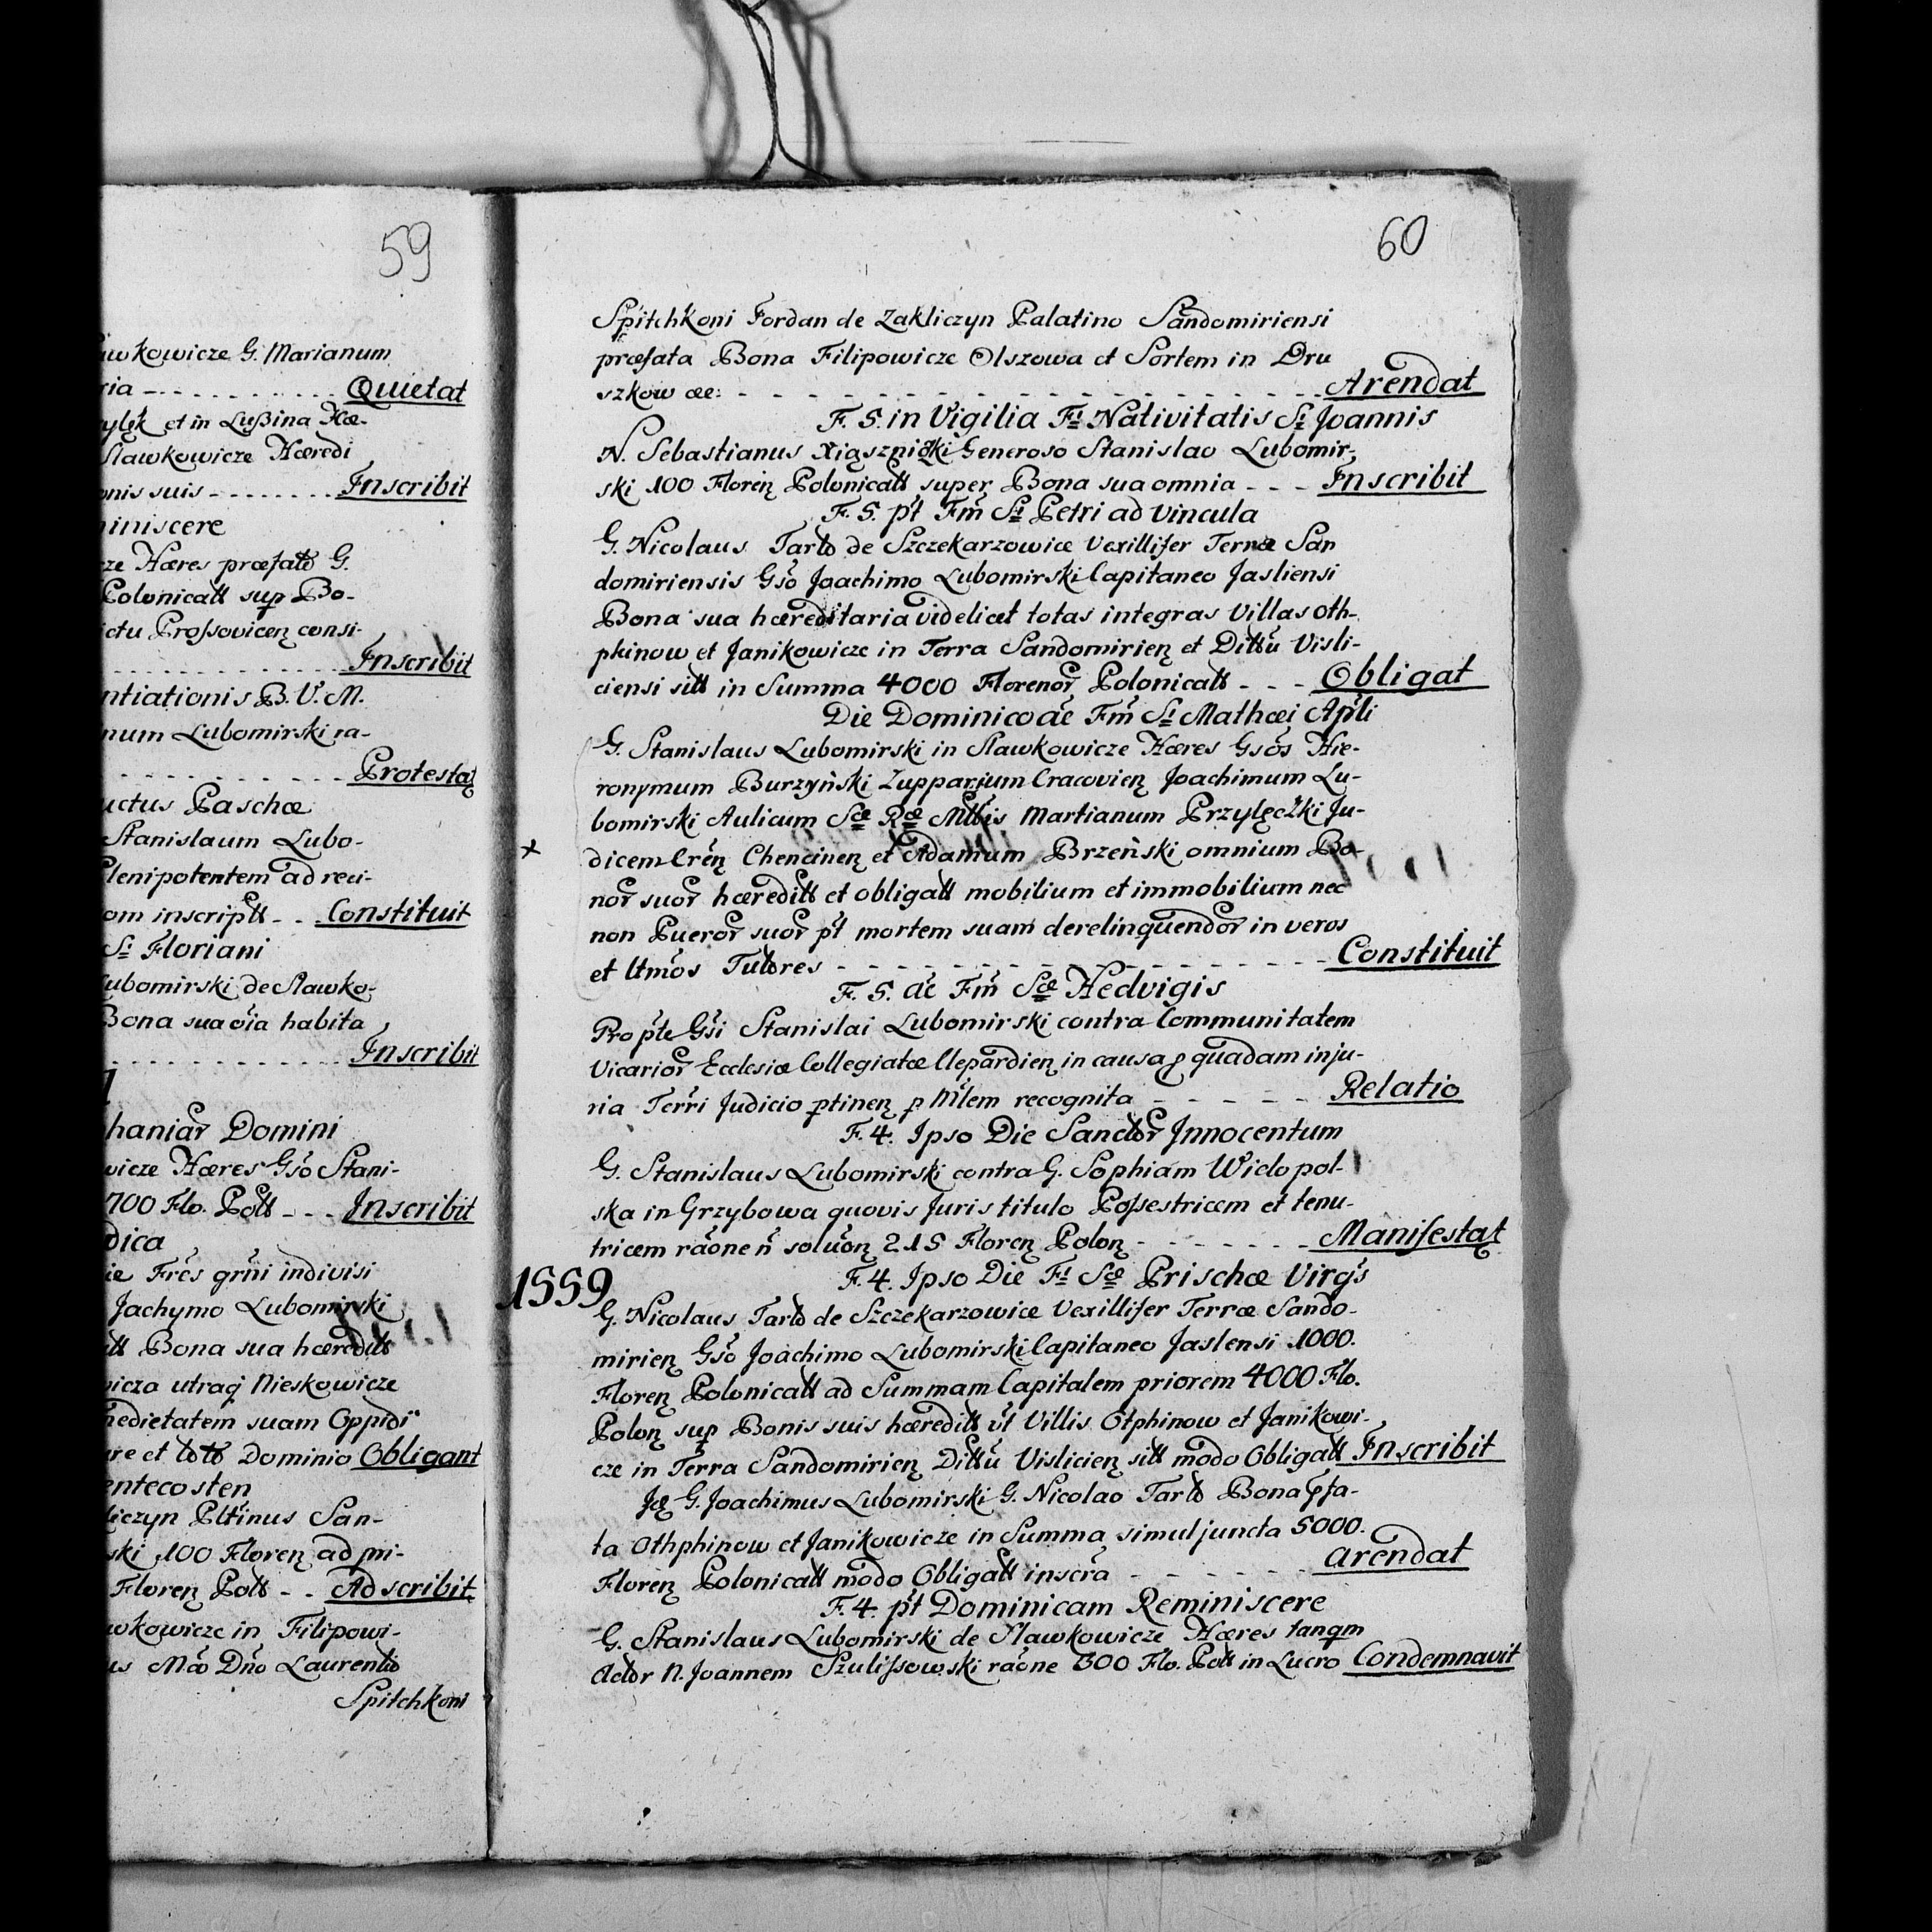 59
awkowicze G. Marianum
ria - - - - - - - - - - Quietat
zylęk et in Lußina Hæ-
Slawkowicze Hæredi
onis suis - - - - - - - Inscribit
miniscere
cze Hæres præfato G.
Polonicall sup Bo-
ictu Proszovicen consi-
- - - - - - - - - - - - Inscribit
ntiationis B. V. M.
num Lubomirski ra-
- - - - - - - - - - - - Protestat
uctus Paschæ
Stanislaum Lubo-
Plenipotentem ad reci-
om inscriptt - - Constituit
Si Floriani
Lubomirski de Slawko-
Bona sua oia habita
- - - - - - - - - - - - Inscribit
haniar Domini
wicze Hæres Gso Stani-
700 Flo. Poll - - - Inscribit
dica
ie Fres grni indivisi
Jachymo Lubomirski
all Bona sua hæreditt
wicza utraq Nieskowicze
medietatem suam Oppidi
ure et toto Dominio Obligant
entecosten
liczyn Pltinus San-
ski 100 Floren ad pri-
Floren Poll - - Adscribit
wkowicze in Filipowi-
us Mco Dno Laurentio
Spitchkoni
60
Spitchkoni Jordan de Zakliczyn Palatino Sandomiriensi
præfata Bona Filipowicze Olszowa et Sortem in Dru
szkow ae: - - - - - - - - - - - - - - - - - - - Arendat
F. 5. in Vigilia Fi Nativitatis Si Joannis
N. Sebastianus Xiąsznicki Generoso Stanislao Lubomir-
ski 100 Floren Polonicall super Bona sua omnia - - - Inscribit
F. 5. pt Fm Si Petri ad Vincula
G. Nicolaus Tarło de Szczekarzowice Vexillifer Terræ San
domiriensis Gso Joachimo Lubomirski Capitaneo Jasliensi
Bona sua hæreditaria videlicet totas integras Villas Oth-
phinow et Janikowicze in Terra Sandomirien et Dittu Visli-
ciensi sitt in Summa 4000 Florenor Polonicall - - - Obligat
Die Dominico ae Fm Si Mathæi Apli
G. Stanislaus Lubomirski in Slawkowicze Hæres Gsos Hie-
ronymum Burzyński Zupparium Cracovien Joachimum Lu-
bomirski Aulicum Sæ Ræ Mttis Martianum Przylęczki Ju-
x dicem Cren Chencinen et Adamum Brzeński omnium Bo-
nor suor hæreditt et obligatt mobilium et immobilium nec
non Pueror suor pt mortem suam derelinquendor in veros
et ltmos Tutores - - - - - - - - - - - - - - - - Constituit
F. 5. ae Fm Sæ Hedvigis
Pro pte Gsi Stanislai Lubomirski contra Communitatem
Vicarior Ecclesiæ Collegiatæ Clepardien in causa p quadam inju-
ria Terri Judicio ptinen p Mlem recognita - - - - - Relatio
F. 4. Ipso Die Sanctor Innocentum
G. Stanislaus Lubomirski contra G. Sophiam Wielopol-
ska in Grzybowa quovis Juris titulo Possestricem et tenu-
tricem raone n soluon 215 Floren Polon - - - - - - - Manifestat
1559 F. 4. Ipso Die Fi Sæ Prischæ Virgs
G. Nicolaus Tarło de Szczekarzowice Vexillifer Terræ Sando-
mirien Gso Joachimo Lubomirski Capitaneo Jaslensi 1000.
Floren Polonicall ad Summam Capitalem priorem 4000 Flo.
Polon sup Bonis suis hæreditt ut Villis Otphinow et Janikowi-
cze in Terra Sandomirien Dittu Vislicien sitt modo Obligatt Inscribit
G. Joachimus Lubomirski G. Nicolao Tarło Bona pfa-
ta Othphinow et Janikowicze in Summa simul juncta 5000.
Floren Polonicall modo Obligatt inscra - - - - - - Arendat
F. 4. pt Dominicam Reminiscere
G. Stanislaus Lubomirski de Slawkowicze Hæres tanqm
Actor N. Joannem Szulissowski raone 300 Flo. Poll in Lucro Condemnavit